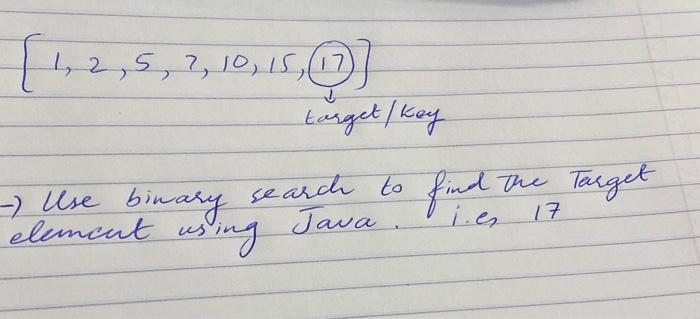 [ 1, 2, 5, 7, 10, 15, 17 ]
target/key
→ Use binary search to find the Target
element using Java. i.e, 17